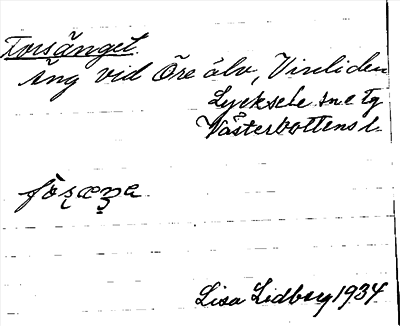 Forsänget.
Äng vid Öre älv, Vinliden
Lycksele sn o tg
Västerbottens l.
Lisa Lidberg 1934